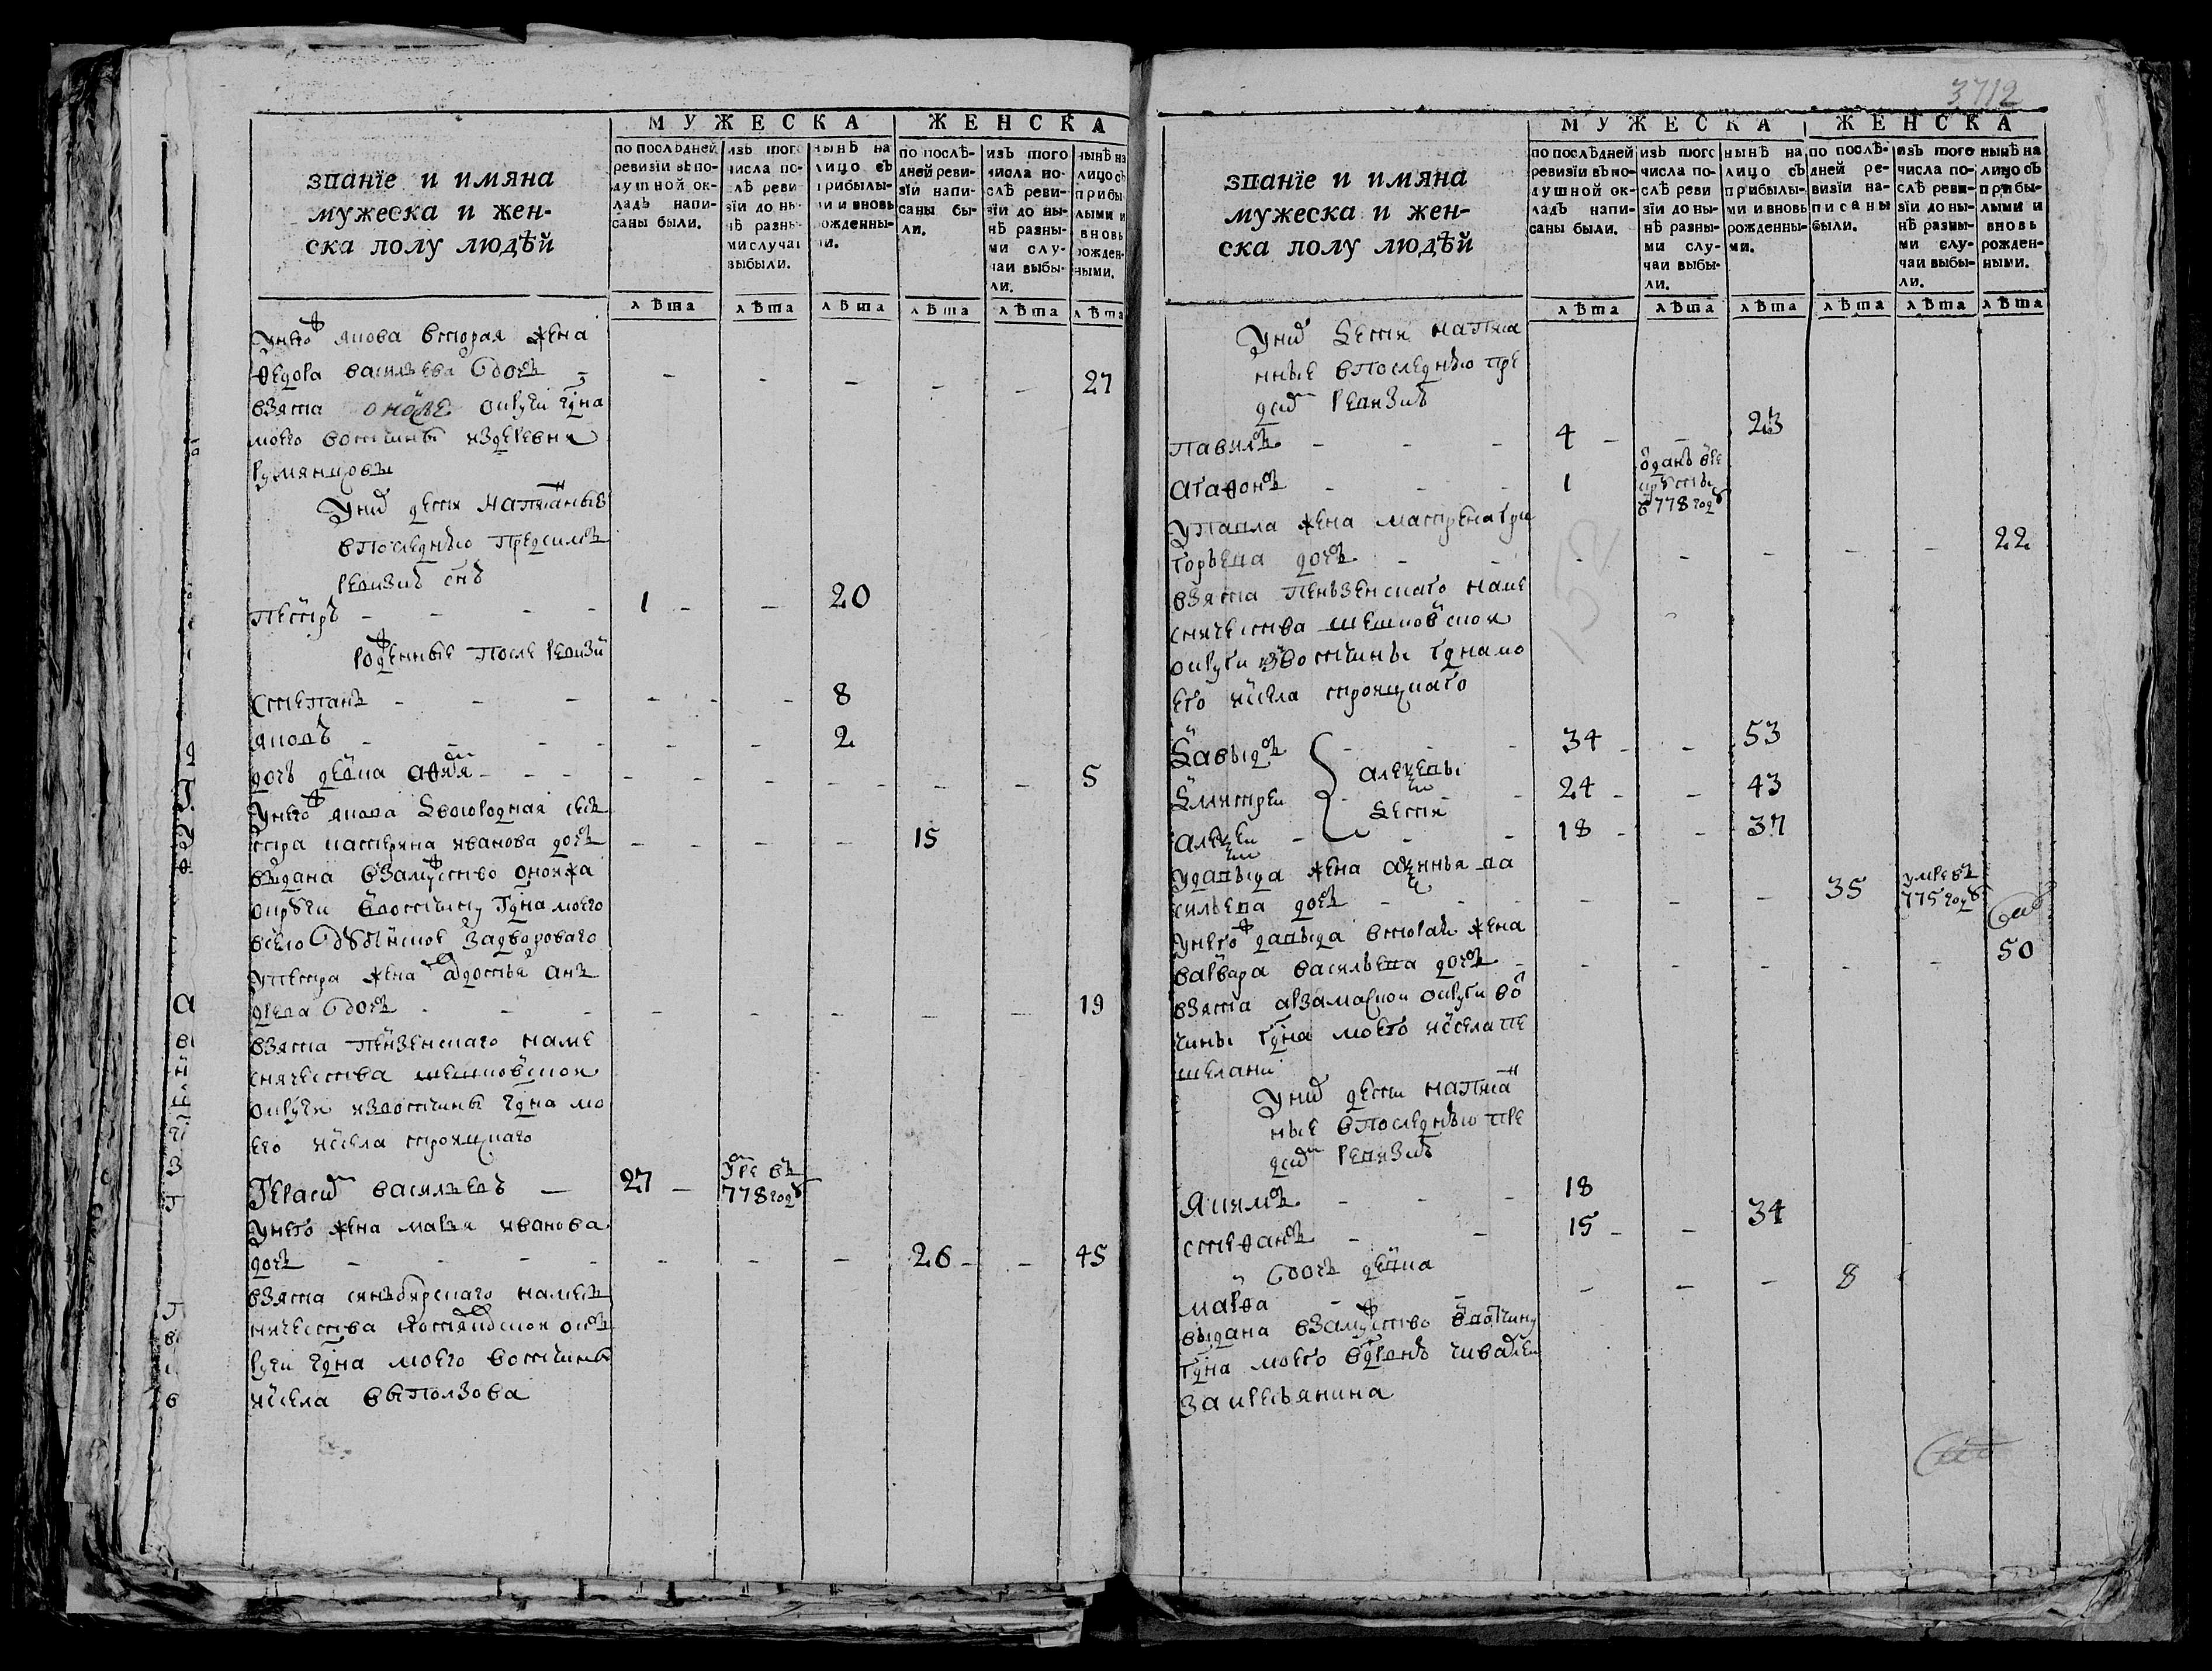 МУЖЕСКА ЖЕНСКА
званїе и имяна
мужеска и жен-
ска полу людѣй
по послѣдней ревизїи въ по-душной ок-ладъ напи-саны были.
изъ того числа по-слѣ реви-зїи до ны-нѣ разны-ми случаи выбыли.
нынѣ на лицо съ прибылы-ми и вновь рожденны-ми.
по послѣ-дней реви-зїи напи-саны бы-ли.
изъ того числа по-слѣ реви-зїи до ны-нѣ разны-ми слу-чаи выбы-ли.
нынѣ на лицо съ прибы-лыми и вновь рожден-ными.
лѣта лѣта лѣта лѣта лѣта лѣта
унего якова вторая жена
Федора васильева дочь - - - - - 27
взята оной же округи гдна
моего вотчины издеревни
румянцовы
уних дети написаныя
впоследнѣю пред сим
ревизию снъ
Петръ - 1 - - 20
рожденные после ревизи
Степанъ - - - 8
яковъ - - - 2
дочь девка - - - - - 5
унего якова двоюродная сес
тра катерина иванова дочь - - - - 15
выдана взамужство оной жа
округи ввотчину гдна моего
всело задворового
упетра жена авдотья анъ
дреева дочь - - - - - 19
взята пензенскаго наме
сничества шешковскои
округи извотчины гдна мо
его исела троицкаго
Герасим васильевъ - 27 - умре въ 778 годѣ
унего жена марья иванова
дочь - - - - 26 - - 45
взята синьбирскаго намес
ничества котяковскои ок
руги гдна моего вотчины
исела выползова
3712
МУЖЕСКА ЖЕНСКА
званїе и имяна
мужеска и жен-
ска полу людѣй
по послѣдней ревизїи въ по-душной ок-ладъ напи-саны были.
изъ того числа по-слѣ реви-зїи до ны-нѣ разны-ми слу-чаи выбы-ли.
нынѣ на лицо съ прибылы-ми и вновь рожденны-ми.
по послѣ-дней ре-визїи на-писаны были.
изъ того числа по-слѣ реви-зїи до ны-нѣ разны-ми слу-чаи выбы-ли.
нынѣ на лицо съ прибы-лыми и вновь рожден-ными.
лѣта лѣта лѣта лѣта лѣта лѣта
уних дети написа
нные впоследнѣю пре
дсим ревизию
Павилъ - - - 4 - - 23
агафонъ - - - 1 отданъ вре круты в 778 годѣ
упавла жена матрена гри
горьева дочь - - - - - 22
взята пеньзенскаго наме
сничества шешковскои
округи извотчины гдна мо
его исела троицкаго
Давыдъ - - 34 - - 53
Дмитреи алексеевы - 24 - - 43
дети
алексеи - - 18 - - 37
удавыда жена аксинья ва
сильева дочь - - - - 35 умре въ 775 годѣ
унего давыда вторая жена
варвара васильева дочь - - - - - 50
взята арзамаскои округи вот
чины гдна моего исела пе
шелани
уних дети написа
ные впоследнѣю пре
дсим ревизию
якимъ - - - 18
стефанъ - - 15 - - 34
дочь девка
марфа - - - - - 8
выдана взамужство ввотчину
гдна моего вдревню чивалеи
закресьянина